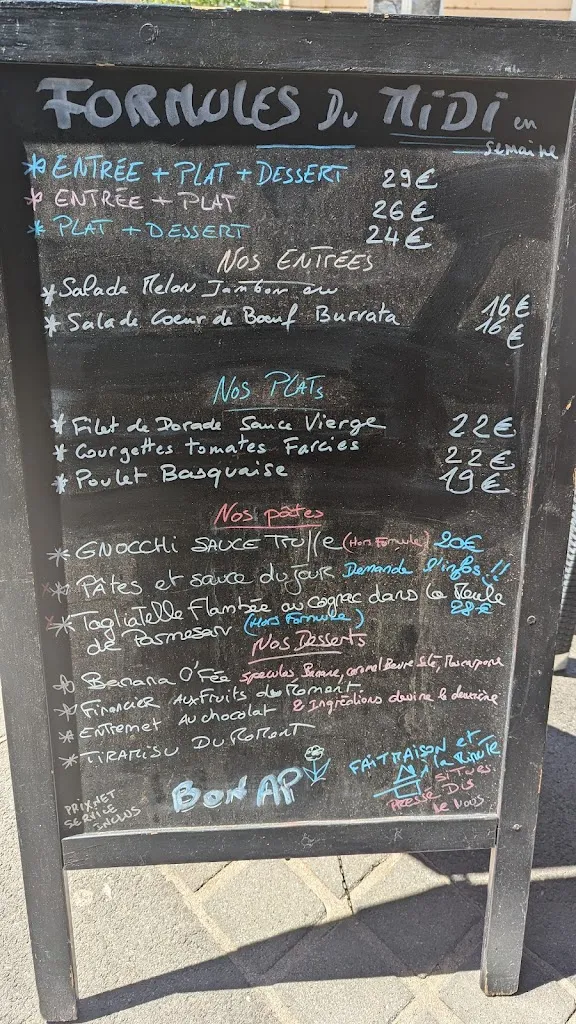 FORMULES DU MIDI en semaine
* ENTRÉE + PLAT + DESSERT 29€
* ENTRÉE + PLAT 26€
* PLAT + DESSERT 24€
NOS ENTRÉES
* Salade Melon Jambon cru 16€
* Salade Coeur de Bœuf Burrata 16€
NOS PLATS
* Filet de Dorade Sauce Vierge 22€
* Courgettes tomates Farcies 22€
* Poulet Basquaise 19€
Nos pâtes
* GNOCCHI SAUCE Truffe (Hors Formule) 20€
* Pâtes et sauce du jour Demande l'infos !!
* Tagliatelle Flambée au cognac dans la Meule
de Parmesan (Hors Formule) 28€
Nos Desserts
* Banana O'Fée Speculos, Banane, caramel Beurre Salé, Mascarpone
* Financier Aux Fruits du Moment
* Entremet Au chocolat 2 Ingrédients devine le deuxième
* TIRAMISU DU MOMENT
BON AP
FAIT MAISON et
à la Minute
SI TU ES
PRESSÉ DIS
le NOUS
PRIX NET
SERVICE
INCLUS